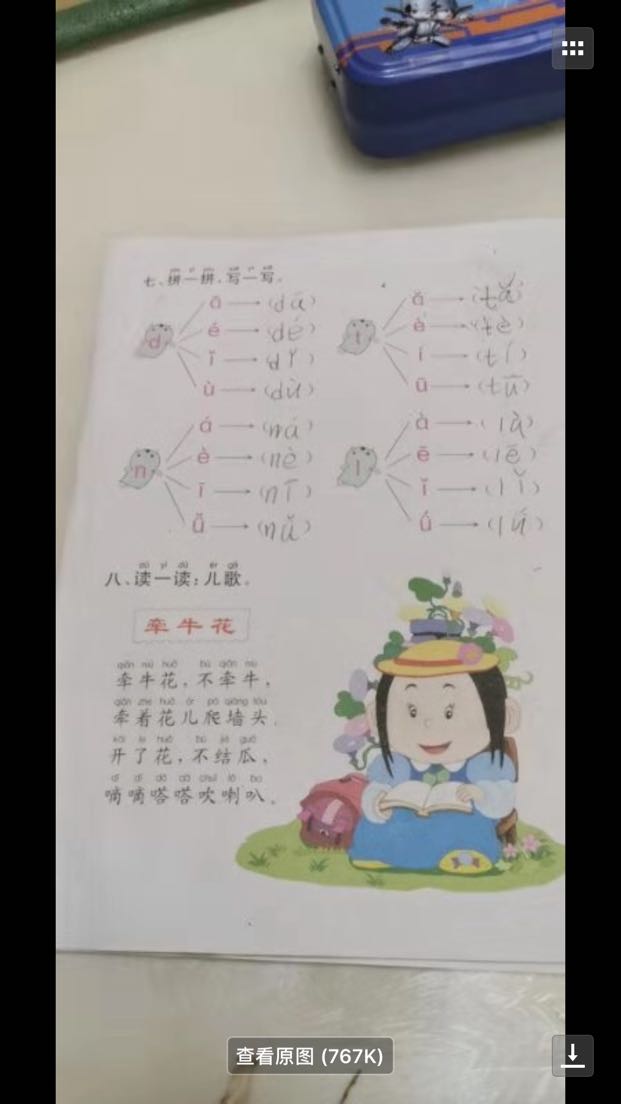 七、拼一拼，写一写。
d
ā (dā)
é (dé)
ǐ (dǐ)
ù (dù)
t
ǎ (tǎ)
è (tè)
í (tí)
ū (tū)
n
á (ná)
è (nè)
ī (nī)
ǚ (nǚ)
l
à (là)
ē (lē)
ǐ (lǐ)
ǘ (lǘ)
dú yì dú ér gē
八、读一读：儿歌。
牵牛花
qiān niú huā bù qiān niú
牵牛花，不牵牛，
qiān zhe huā ér pá qiáng tóu
牵着花儿爬墙头。
kāi le huā bù jiē guā
开了花，不结瓜，
dī dī dā dā chuī lǎ ba
嘀嘀嗒嗒吹喇叭。
查看原图 (767K)